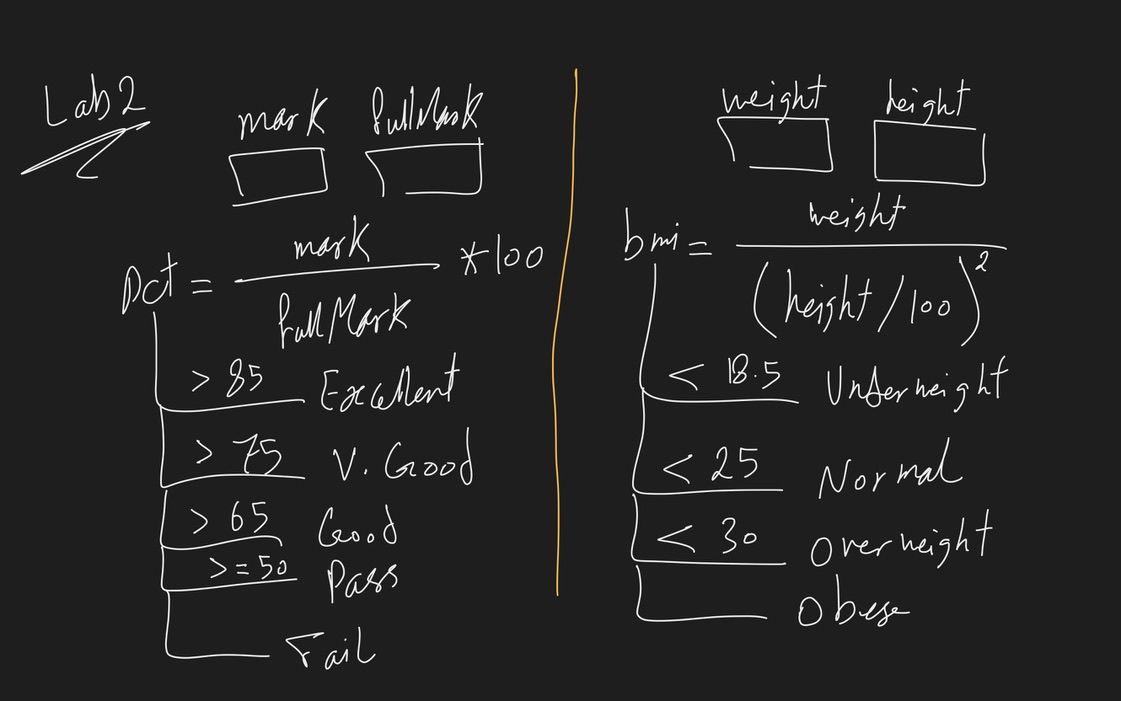 Lab 2
mark fullMark
pct = mark / fullMark * 100
> 85 Excellent
> 75 V. Good
> 65 Good
>= 50 Pass
Fail
weight height
bmi = weight / (height / 100)²
< 18.5 Underweight
< 25 Normal
< 30 Overweight
Obese